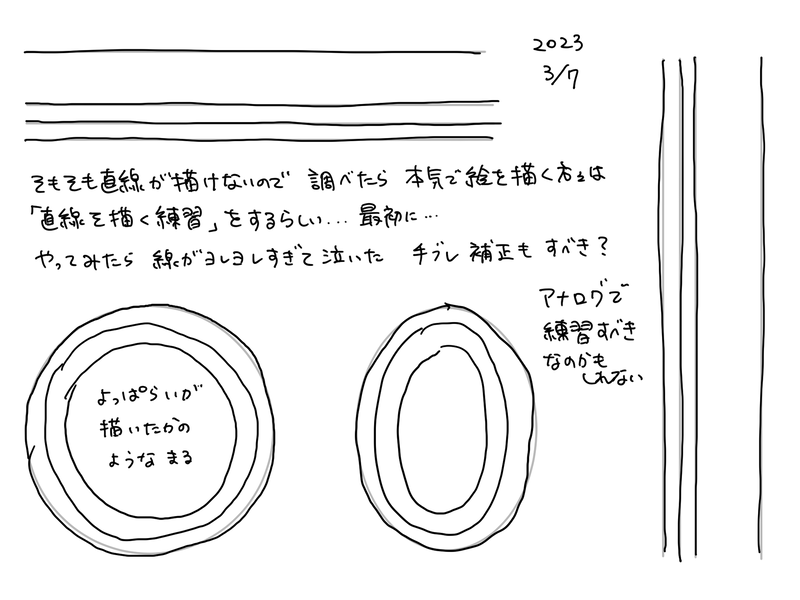 2023
3/7
そもそも直線が描けないので 調べたら 本気で絵を描く方々は
「直線を描く練習」をするらしい... 最初に...
やってみたら 線がヨレヨレすぎて泣いた 手ブレ補正も すべき?
アナログで
練習すべき
なのかも
しれない
よっぱらいが
描いたかの
ような まる